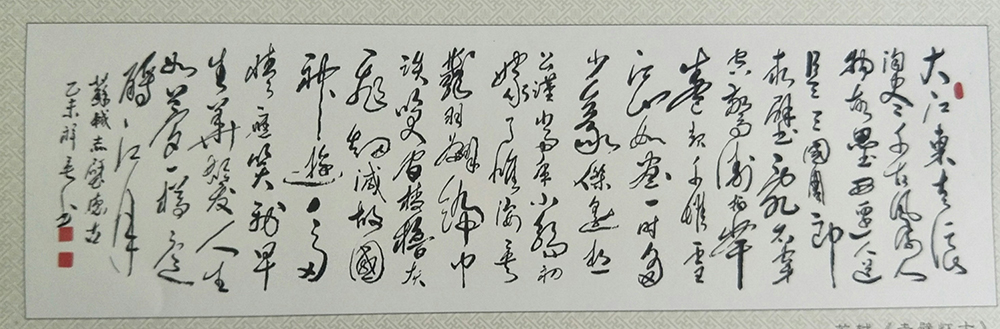 大江東去浪
淘盡千古風流人
物故壘西邊人道
是三國周郎
赤壁亂石穿
空驚濤拍岸
捲起千堆雪
江山如畫一時多
少豪傑遙想
公瑾當年小喬初
嫁了雄姿英
發羽扇綸巾
談笑間檣櫓灰
飛煙滅故國
神遊多
情應笑我早
生華髮人生
如夢一樽還
酹江月
蘇軾赤壁懷古
乙未